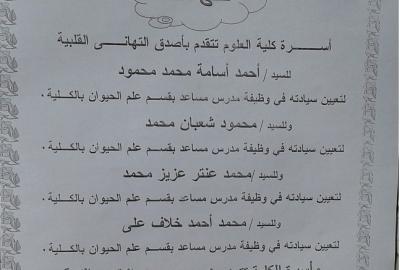 أســـــرة كلية العلوم تتقدم بأصدق التهانى القلبية
للسيد / أحمد أسامة محمد محمود
لتعيين سيادته في وظيفة مدرس مساعد بقسم علم الحيوان بالكلية .
وللسيد / محمود شعبان محمد
لتعيين سيادته في وظيفة مدرس مساعد بقسم علم الحيوان بالكلية .
وللسيد / محمد عنتر عزيز محمد
لتعيين سيادته في وظيفة مدرس مساعد بقسم علم الحيوان بالكلية .
وللسيد / محمد أحمد خلاف على
لتعيين سيادته في وظيفة مدرس مساعد بقسم علم الحيوان بالكلية .